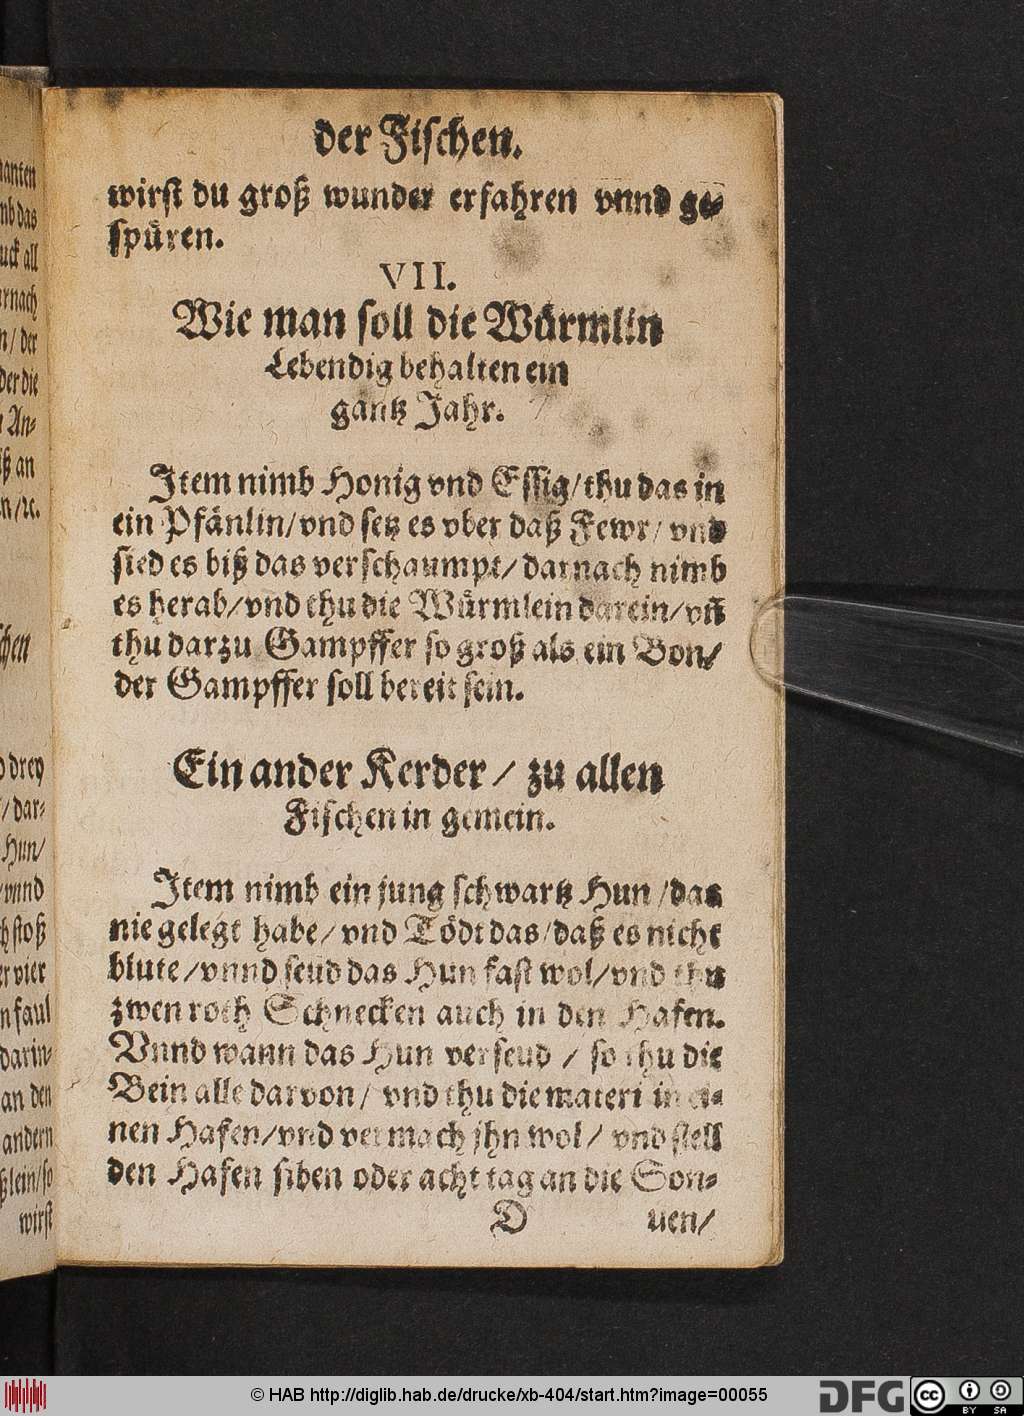 der Fischen.
wirst du groß wunder erfahren vnnd ge-
spüren.
VII.
Wie man soll die Würmlin
Lebendig behalten ein
gantz Jahr.
Item nimb Honig vnd Essig/ thu das in
ein Pfänlin/ vnd setz es vber daß Fewr/ vnd
sied es biß das verschaumpt/ darnach nimb
es herab/ vnd thu die Würmlein darein/ vñ
thu darzu Gampffer so groß als ein Bon/
der Gampffer soll bereit sein.
Ein ander Kerder/ zu allen
Fischen in gemein.
Item nimb ein jung schwartz Hun/ das
nie gelegt habe/ vnd Tödt das/ daß es nicht
blute/ vnnd seud das Hun fast wol/ vnd thu
zwen roth Schnecken auch in den Hafen.
Vnnd wann das Hun verseud/ so thu die
Bein alle darvon/ vnd thu die materi in ei-
nen Hafen/ vnd vermach jhn wol/ vnd stell
den Hafen siben oder acht tag an die Son-
D uen/
nb das
uck all
rnach
n/ der
der die
n An-
iß an
n/ ꝛc.
schen
drey
/ dar-
Hun/
vnnd
h stoß
er vier
n faul
darin-
an den
andern
ßlein/ so
wirst
© HAB http://diglib.hab.de/drucke/xb-404/start.htm?image=00055
DFG
cc BY SA